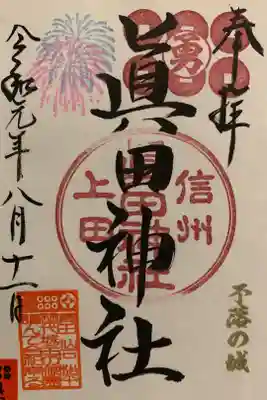 奉拝
勇
眞田神社
信州
上田
不落の城
令和元年八月十一日